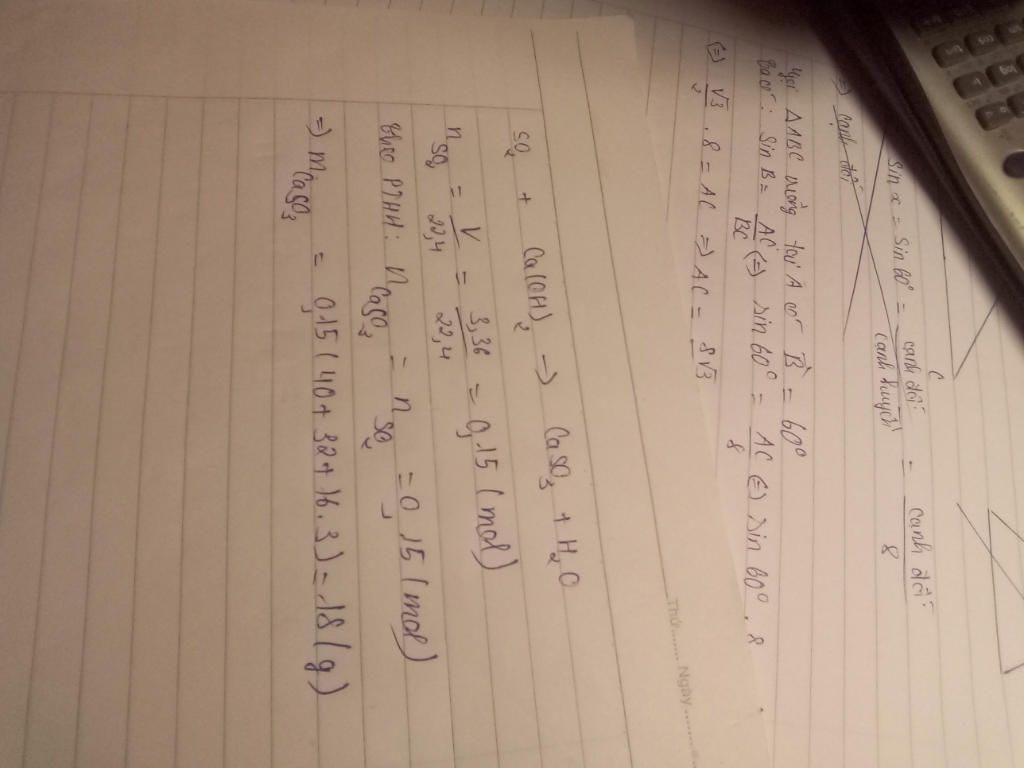 C
Sin x = Sin 60° = cạnh đối / cạnh huyền = cạnh đối / 8
=) cạnh đối
Gọi ΔABC vuông tại A có B̂ = 60°
Ta có: Sin B = AC / BC (=) Sin 60° = AC / 8 (=) Sin 60° . 8
(=) √3 / 2 . 8 = AC =) AC = 8√3
Thứ......... Ngày.........
SO2 + Ca(OH)2 -> CaSO3 + H2O
nSO2 = V / 22,4 = 3,36 / 22,4 = 0,15 (mol)
theo PTHH: nCaSO3 = nSO2 = 0,15 (mol)
=) mCaSO3 = 0,15 (40 + 32 + 16.3) = 18 (g)